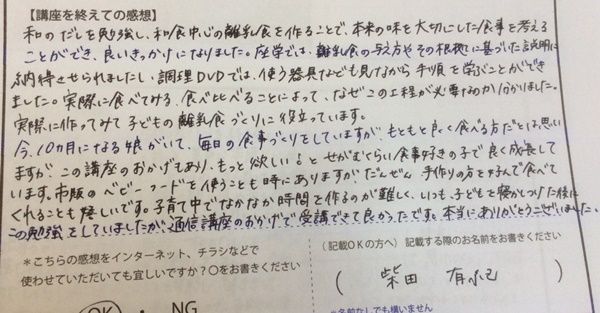 【講座を終えての感想】
和のだしを勉強し、和食中心の離乳食を作ることで、本来の味を大切にした食事を考える
ことができ、良いきっかけになりました。座学では、離乳食の与え方やその根拠に基づいた説明に
納得させられましたし、調理DVDでは、使う器具なども見ながら手順を学ぶことができ
ました。実際に食べてみる、食べ比べることによって、なぜこの工程が必要なのか分かりました。
実際に作ってみて子どもの離乳食づくりに役立っています。
今、10カ月になる娘がいて、毎日の食事づくりをしていますが、もともと良く食べる方だとは思い
ますが、この講座のおかげもあり、もっと欲しい!とせがむくらい食事好きの子で良く成長して
います。市販のベビーフードを使うことも時にありますが、だんぜん手作りの方を好んで食べて
くれることも嬉しいです。子育て中でなかなか時間を作るのが難しく、いつも、子どもを寝かしつけた後に
この勉強をしていましたが、通信講座のおかげで受講できて良かったです。本当にありがとうございました。
*こちらの感想をインターネット、チラシなどで
使わせていただいても宜しいですか?○をお書きください
OK ・ NG
(記載OKの方へ)記載する際のお名前をお書きください
( 柴田 有
*名前なしでも構いません